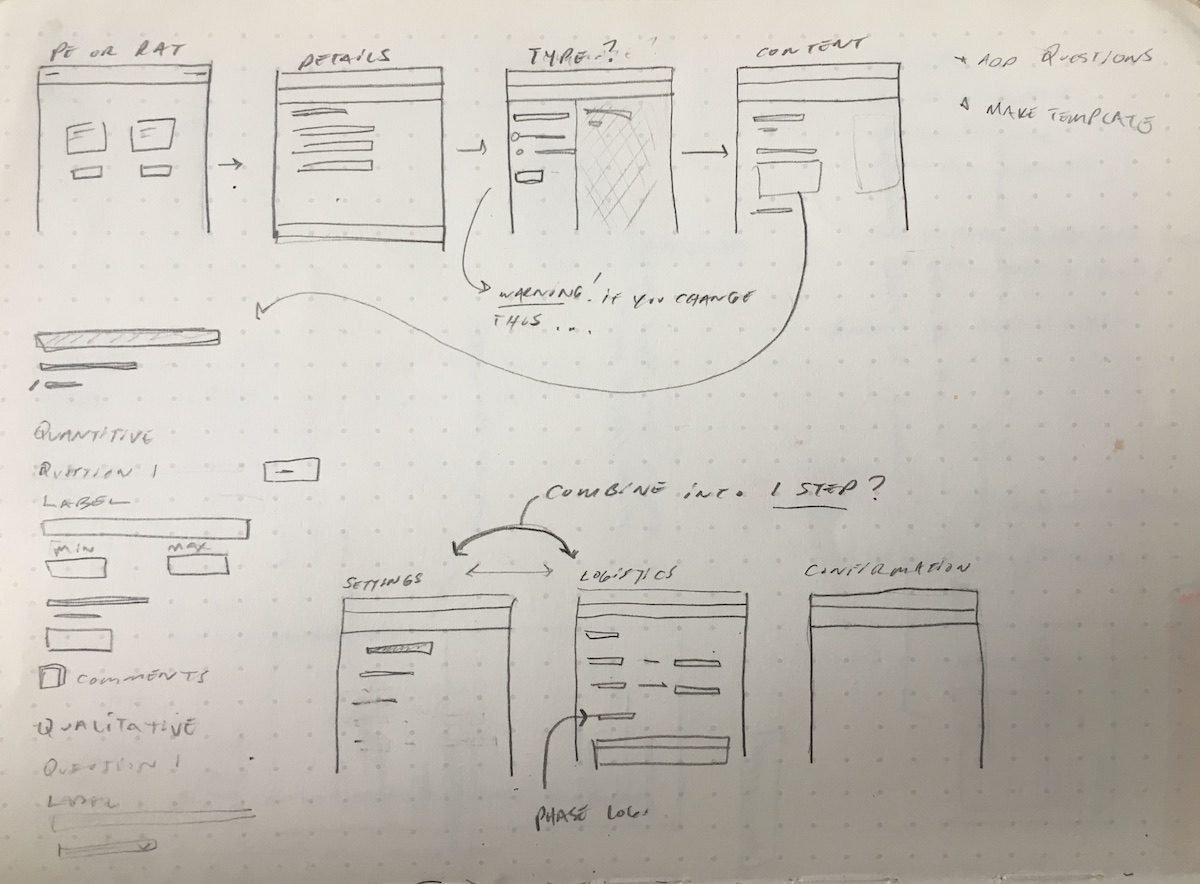 PE OR RAT
DETAILS
TYPE?
CONTENT
ADD QUESTIONS
MAKE TEMPLATE
WARNING! if YOU CHANGE
THIS ...
QUANTITIVE
QUESTION 1
LABEL
MIN MAX
COMMENTS
QUALITATIVE
QUESTION 1
LABEL
COMBINE into 1 STEP?
SETTINGS
LOGISTICS
CONFIRMATION
PHASE